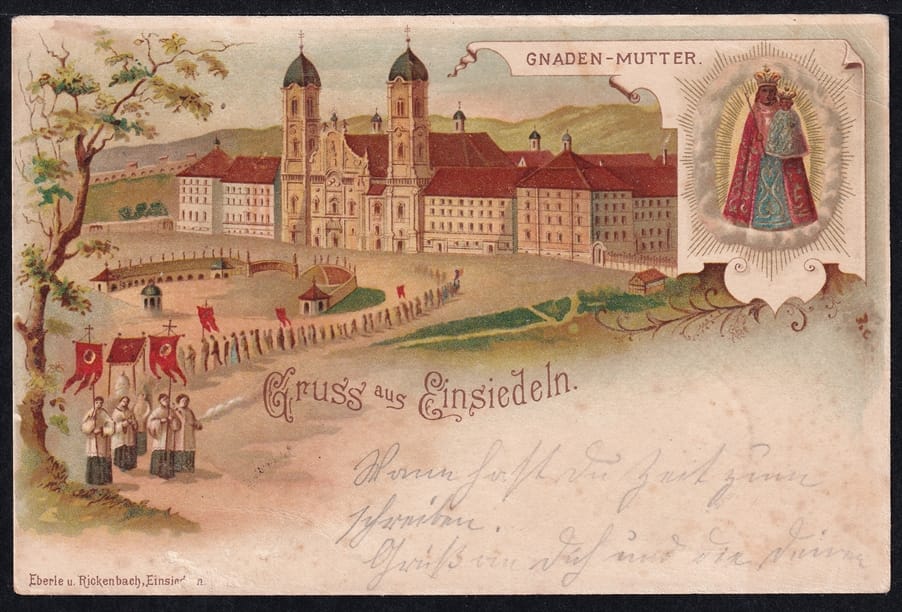 GNADEN-MUTTER.
Gruss aus Einsiedeln.
Wann hast du Zeit zum
schreiben.
Gruß an Dich und die Deinen
Eberle u. Rickenbach, Einsied n.